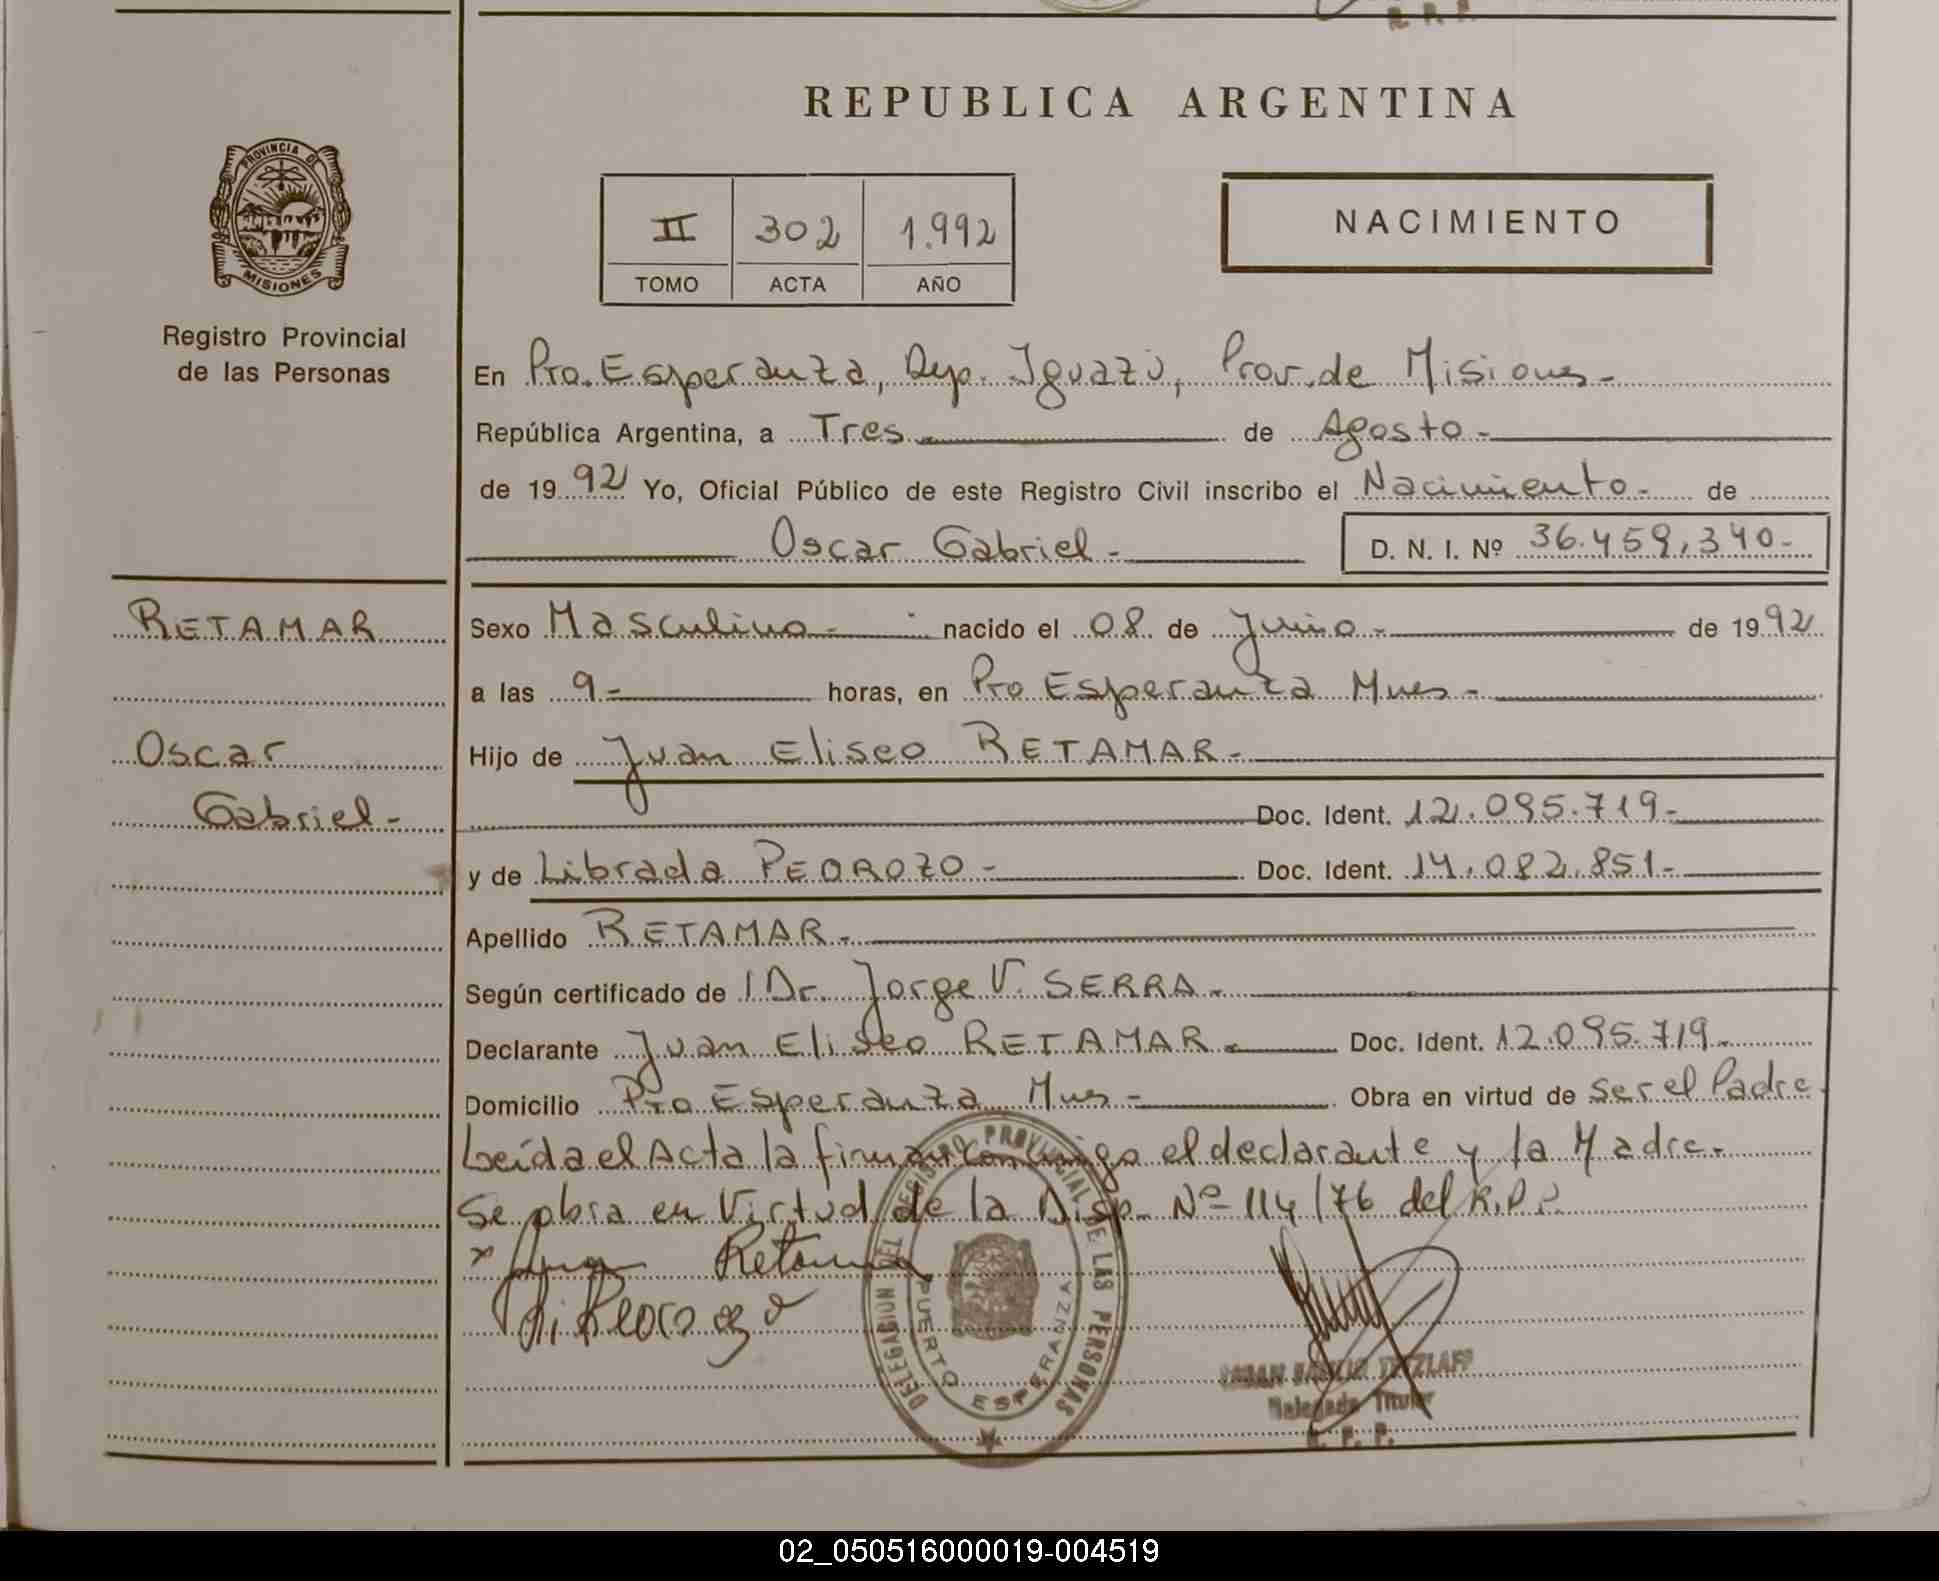 R. P. P.
REPUBLICA ARGENTINA
PROVINCIA DE
MISIONES
Registro Provincial
de las Personas
II 302 1.992
TOMO ACTA AÑO
NACIMIENTO
En Pto. Esperanza, Dep. Iguazú, Prov. de Misiones -
República Argentina, a Tres de Agosto -
de 1992 Yo, Oficial Público de este Registro Civil inscribo el Nacimiento - de
Oscar Gabriel - D. N. I. Nº 36.459.340 -
RETAMAR
Oscar
Gabriel -
Sexo Masculino - nacido el 08 de Junio - de 1992
a las 9 - horas, en Pto Esperanza Mnes -
Hijo de Juan Eliseo RETAMAR -
Doc. Ident. 12.095.719 -
y de Librada PEDROZO - Doc. Ident. 14.082.851 -
Apellido RETAMAR -
Según certificado de Dr. Jorge V. SERRA -
Declarante Juan Eliseo RETAMAR - Doc. Ident. 12.095.719 -
Domicilio Pto Esperanza Mnes - Obra en virtud de Ser el Padre
Leída el Acta la firman conmigo el declarante y la Madre -
Se obra en Virtud de la Disp. Nº 114/76 del R.P.P.
DELEGACION DEL REGISTRO PROVINCIAL DE LAS PERSONAS
PUERTO ESPERANZA
TETZLAFF
Delegado Titular
R. P. P.
02_050516000019-004519